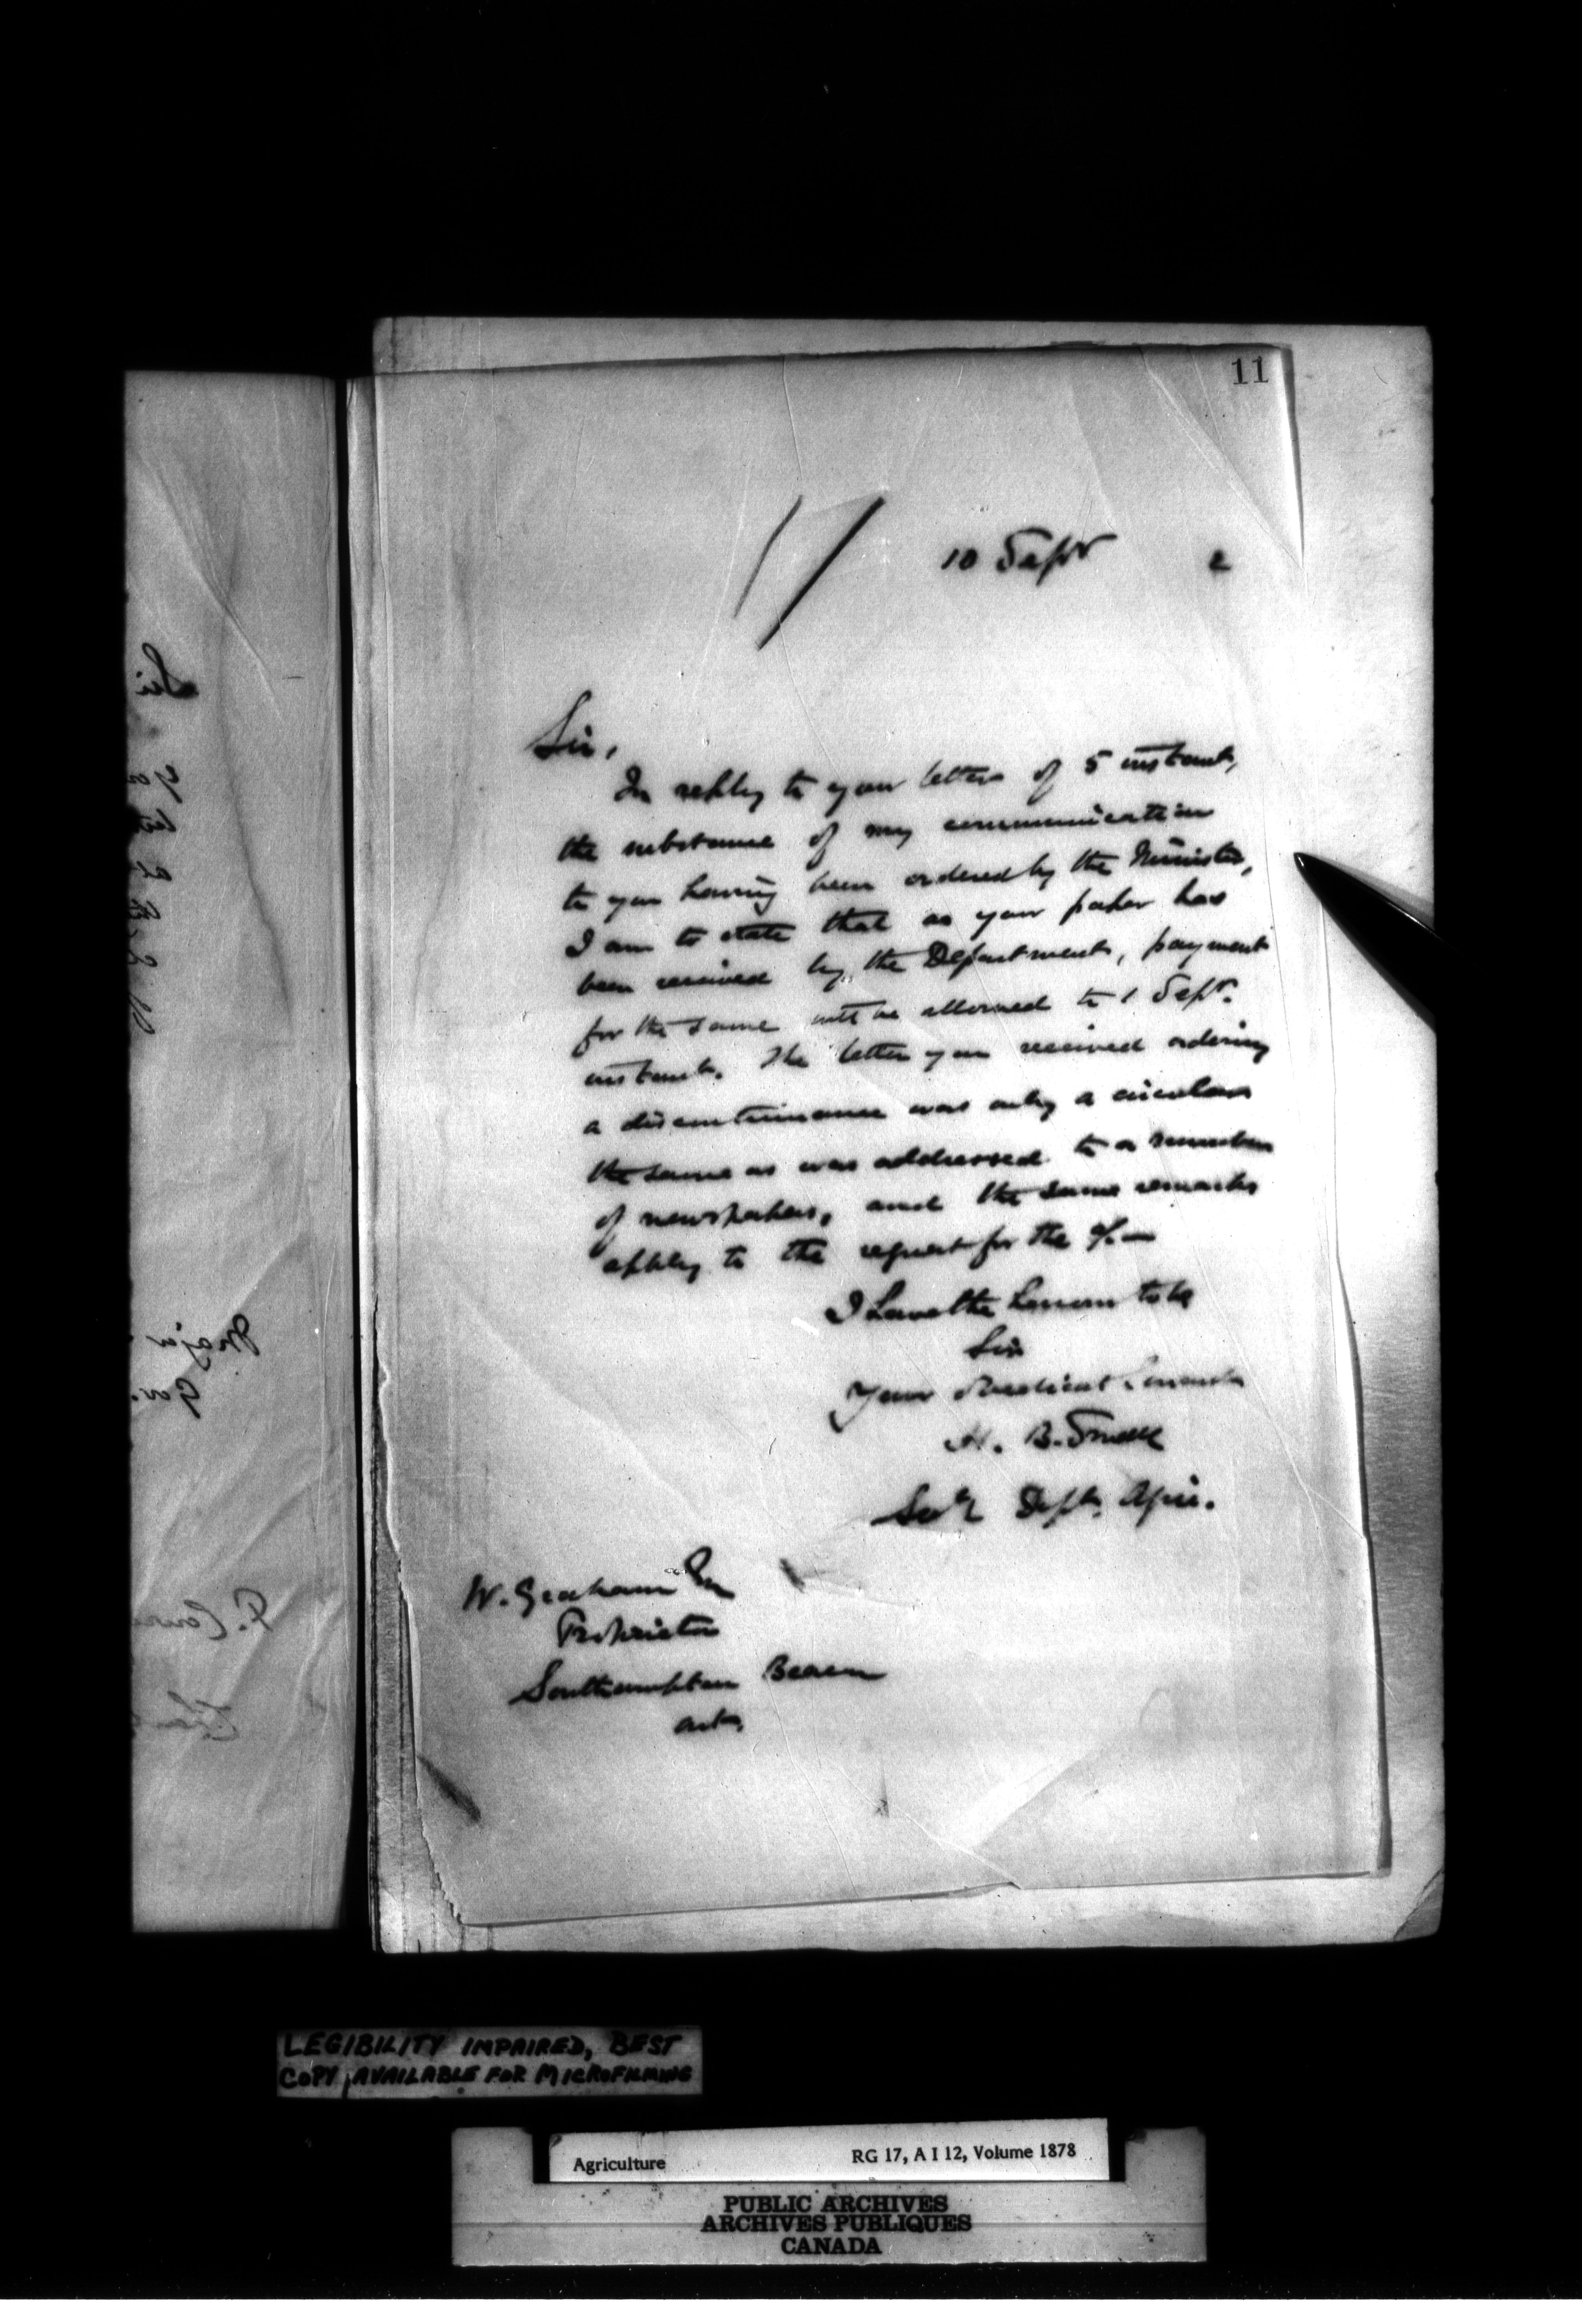 11
10 Sepr 2
Sir,
In reply to your letter of 5 instant,
the substance of my communication
to you having been ordered by the Minister,
I am to state that as your paper has
been received by the Department, payment
for the same will be allowed to 1 Sepr.
instant. The letter you received ordering
a discontinuance was only a circular
the same as was addressed to a number
of newspapers, and the same remarks
apply to the request for the a/c—
I have the honour to be
Sir
Your Obedient Servant
H. B. Small
Secy Dept. Agri.
W. Graham Esq
Proprietor
Southampton Beacon
Ont.
Sir
Major
Gov.
LEGIBILITY IMPAIRED, BEST
COPY AVAILABLE FOR MICROFILMING
Agriculture RG 17, A I 12, Volume 1878
PUBLIC ARCHIVES
ARCHIVES PUBLIQUES
CANADA